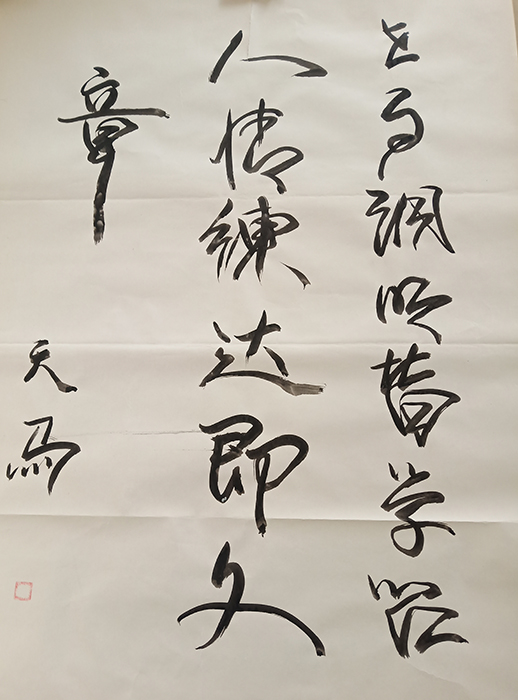 世事洞明皆学问
人情練达即文
章
天马